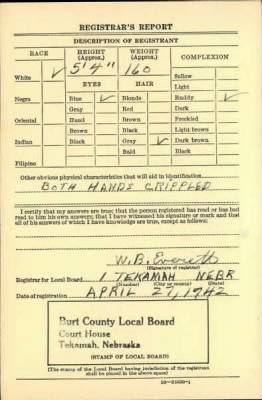 REGISTRAR'S REPORT
DESCRIPTION OF REGISTRANT
RACE HEIGHT (Approx.) WEIGHT (Approx.) COMPLEXION
White ✓ 5'4" 160 Sallow
EYES HAIR Light
Negro Blue ✓ Blonde Ruddy ✓
Gray Red Dark
Oriental Hazel Brown Freckled
Brown Black Light brown
Indian Black Gray ✓ Dark brown
Bald Black
Filipino
Other obvious physical characteristics that will aid in identification
BOTH HANDS CRIPPLED
I certify that my answers are true; that the person registered has read or has had
read to him his own answers; that I have witnessed his signature or mark and that
all of his answers of which I have knowledge are true, except as follows:
W. B. Everett
(Signature of registrar)
Registrar for Local Board 1 TEKAMAH NEBR
(Number) (City or county) (State)
Date of registration APRIL 27, 1942
Burt County Local Board
Court House
Tekamah, Nebraska
(STAMP OF LOCAL BOARD)
(The stamp of the Local Board having jurisdiction of the registrant
shall be placed in the above space)